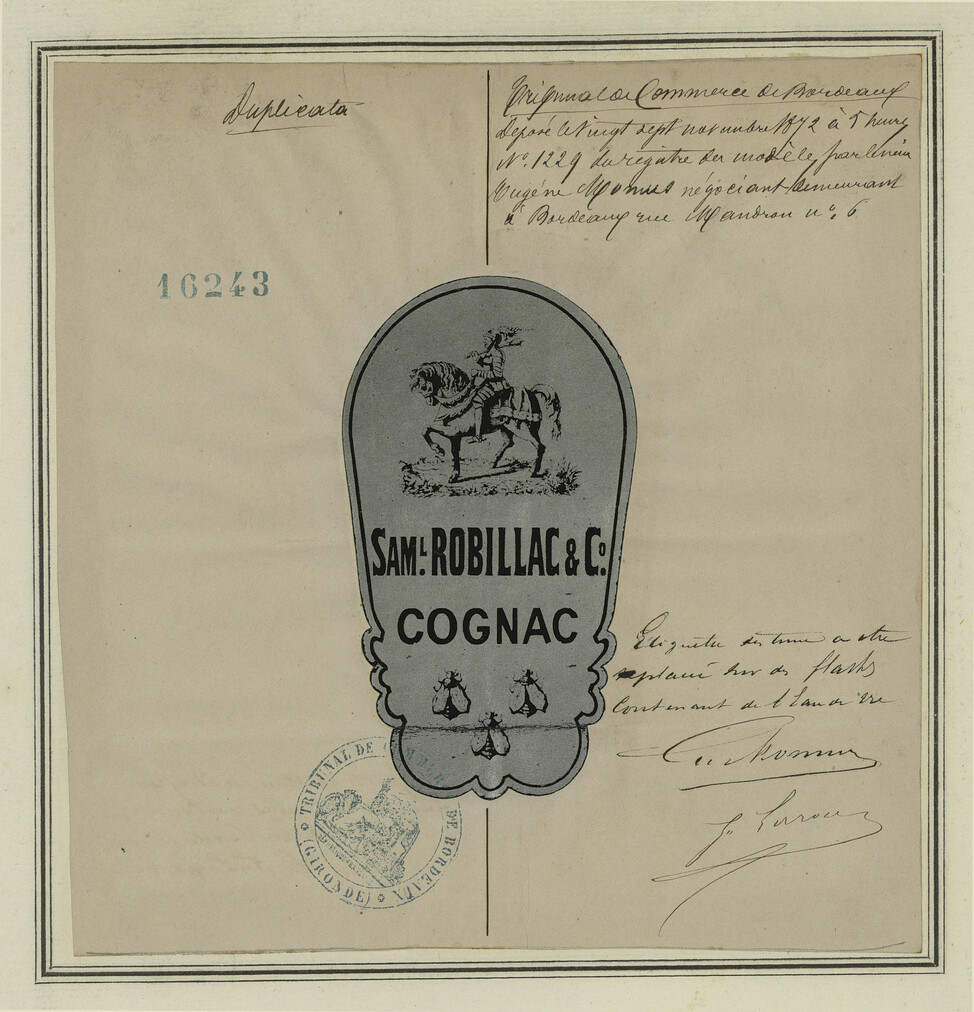 Duplicata
Tribunal de Commerce de Bordeaux
Déposé le vingt sept novembre 1872 à 5 heures
N°. 1229 du registre des modèle par le sieur
Eugène Momus négociant demeurant
à Bordeaux rue Mandron n°. 6
16243
SAML. ROBILLAC & Co.
COGNAC
Etiquette destinée a etre
placé sur des flasks
Contenant de l'Eau de vie
TRIBUNAL DE COMMERCE DE BORDEAUX
(GIRONDE)